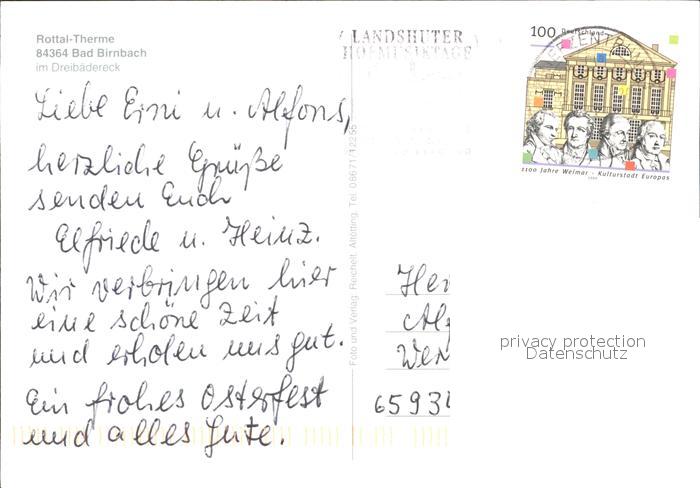 Rottal-Therme
84364 Bad Birnbach
im Dreibädereck
Liebe Erni u. Alfons,
herzliche Grüße
senden Euch
Elfriede u. Heinz.
Wir verbringen hier
eine schöne Zeit
und erholen uns gut.
Ein frohes Osterfest
und alles Gute.
Foto und Verlag: Reichelt, Altötting, Tel. 08671/12255
LANDSHUTER
HOFMUSIKTAGE
100 Deutschland
1100 Jahre Weimar - Kulturstadt Europas
1999
6593
privacy protection
Datenschutz